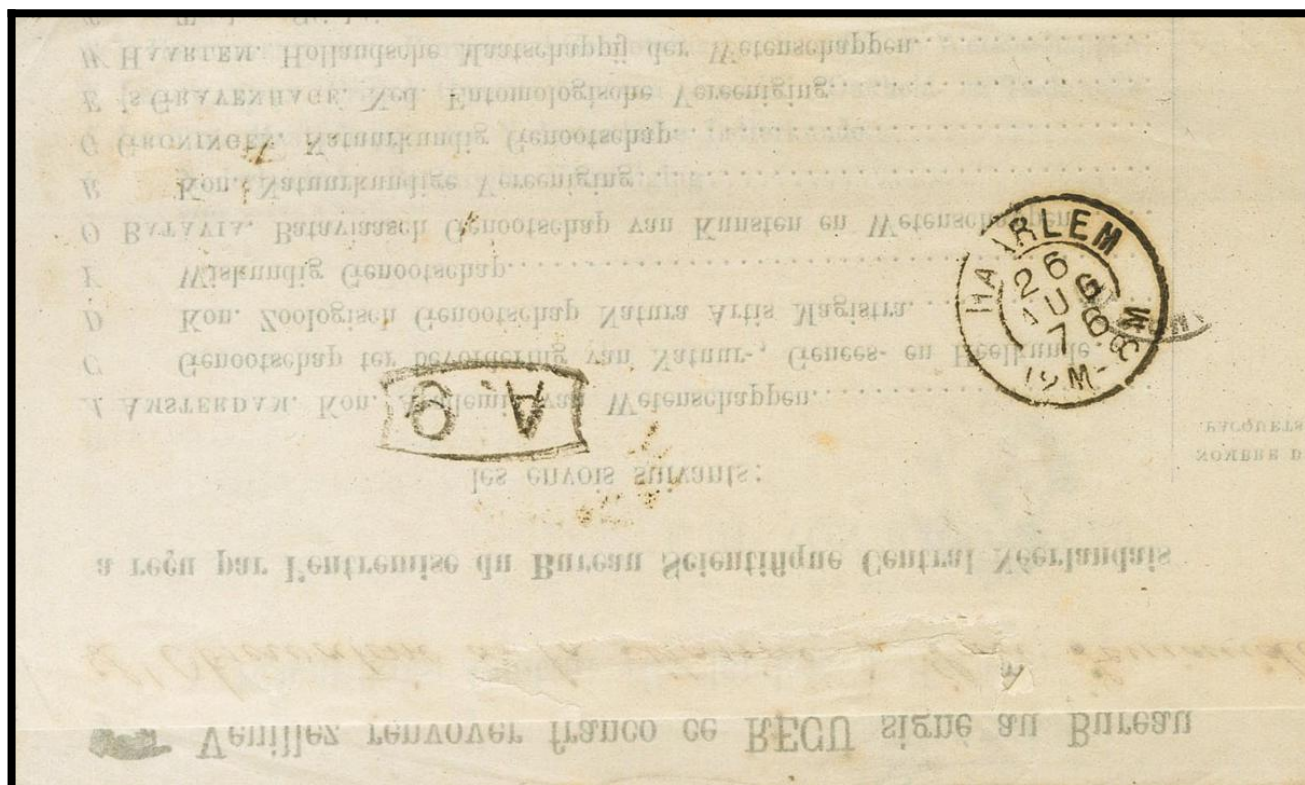 Veuillez renvoyer franco ce REÇU signé au Bureau
L'Observatoire de la
a reçu par l'entremise du Bureau Scientifique Central Néerlandais
les envois suivants:
NOMBRE D
PACQUETS
A AMSTERDAM. Kon. Akademie van Wetenschappen
C Genootschap ter bevordering van Natuur-, Genees- en Heelkunde
D Kon. Zoologisch Genootschap Natura Artis Magistra
Wiskundig Genootschap
O BATAVIA. Bataviaasch Genootschap van Kunsten en Wetenschappen
R Kon. Natuurkundige Vereeniging
G GRONINGEN. Natuurkundig Genootschap
E 'sGRAVENHAGE. Ned. Entomologische Vereeniging
W HAARLEM. Hollandsche Maatschappij der Wetenschappen
HAARLEM
26
AUG
76
12M-3M
A.Q